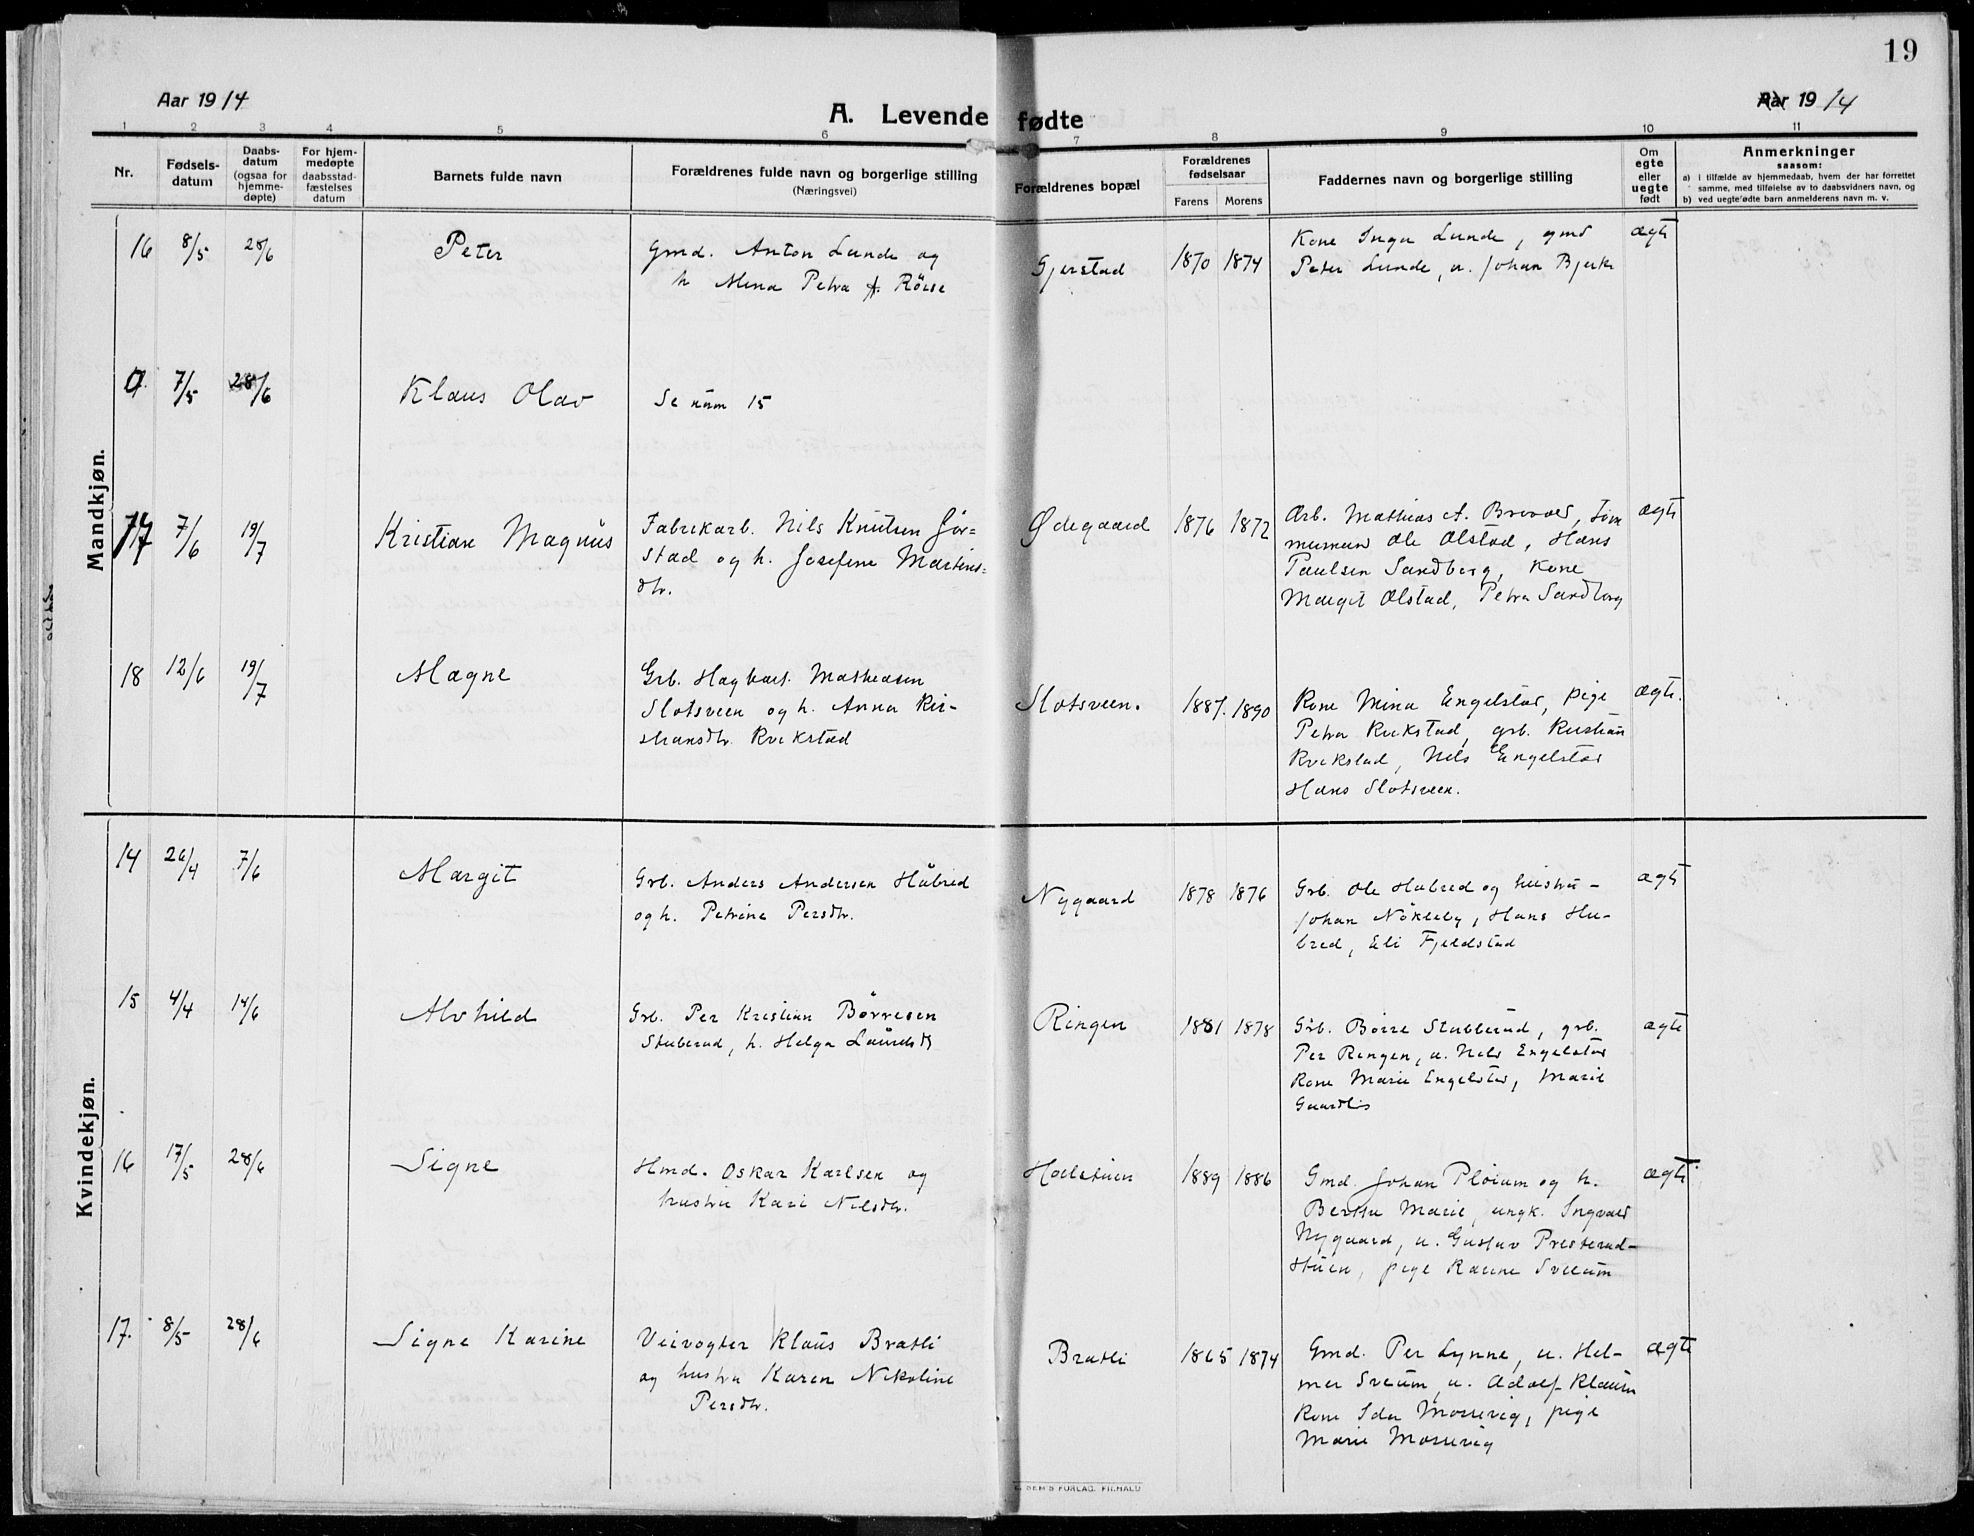 19
Aar 1914
Aar 1914
A. Levende fødte
1 2 3 4 5 6 7 8 9 10 11
Nr.
Fødsels-
datum
Daabs-
datum
(ogsaa for
hjemme-
døpte)
For hjem-
medøpte
daabsstad-
fæstelses
datum
Barnets fulde navn
Forældrenes fulde navn og borgerlige stilling
(Næringsvei)
Forældrenes bopæl
Forældrenes
fødselsaar
Farens Morens
Faddernes navn og borgerlige stilling
Om
egte
eller
uegte
født
Anmerkninger
saasom:
a) i tilfælde av hjemmedaab, hvem der har forrettet
samme, med tilføielse av to daabsvidners navn, og
b) ved uegte fødte barn anmelderens navn m. v.
Mandkjøn.
16 8/5 28/6 Peter
Gmd. Anton Lunde og
h Mina Petra A. Röise
Gjerstad 1870 1874
Kone Inga Lunde, gmd
Peter Lunde, u. Johan Bjerke
ægte
0. 7/5 28/6 Klaus Olav Se num 15
17 7/6 19/7 Kristian Magnus
Fabrikarb. Nils Knutsen Jör=
stad og h. Josefine Martins=
dtr.
Ødegaard 1876 1872
Arb. Mathias A. Brovold, töm
mermand Ole Olstad, Hans
Paulsen Sandberg, Kone
Margit Olstad, Petra Sandberg
ægte
18 12/6 19/7 Magne
Grb. Hagbart Matheasen
Slotsveen og h. Anna Kri-
stiansdtr. Rvekstad
Slotsveen. 1887. 1890
Kone Mina Engelstad, pige
Petra Rvekstad, grb. Kristian
Rvekstad, Nils Engelstad
Hans Slotsveen.
ægte.
Kvindekjøn.
14 26/4 7/6 Margit
Grb. Anders Andersen Hubred
og h. Petrine Persdtr.
Nygaard 1878 1876
Grb. Ole Hubred og hustru-
Johan Nökleby, Hans Hu-
bred, Eli Fjeldstad
ægte
15 4/4 14/6 Alvhild
Grb. Per Kristian Börresen
Stuberud, h. Helga Lauridsdt
Ringen 1881 1878
Grb. Börre Stubberud, grb.
Per Ringen, u. Nils Engelstad
Kone Marie Engelstad, Marie
Gaardlis
ægte
16 17/5 28/6 Signe
Hmd. Oskar Karlsen og
hustru Kari Nilsdtr.
Hælstuen 1889 1886
Gmd. Johan Plöium og h.
Berthe Marie, ungk. Ingvald
Nygaard, u. Gustav Presterud-
stuen, pige Karine Sveum
ægte
17. 8/5 28/6 Signe Karine
Veivogter Klaus Bratli
og hustru Karen Nikoline
Persdtr.
Bratli 1865 1874
Gmd. Per Lynne, u. Hel-
mer Sveum, u. Adolf Klaum
Kone Ida Mossevig, pige
Marie Mossevig
ægte
SEM'S FORLAG, FR.HALD